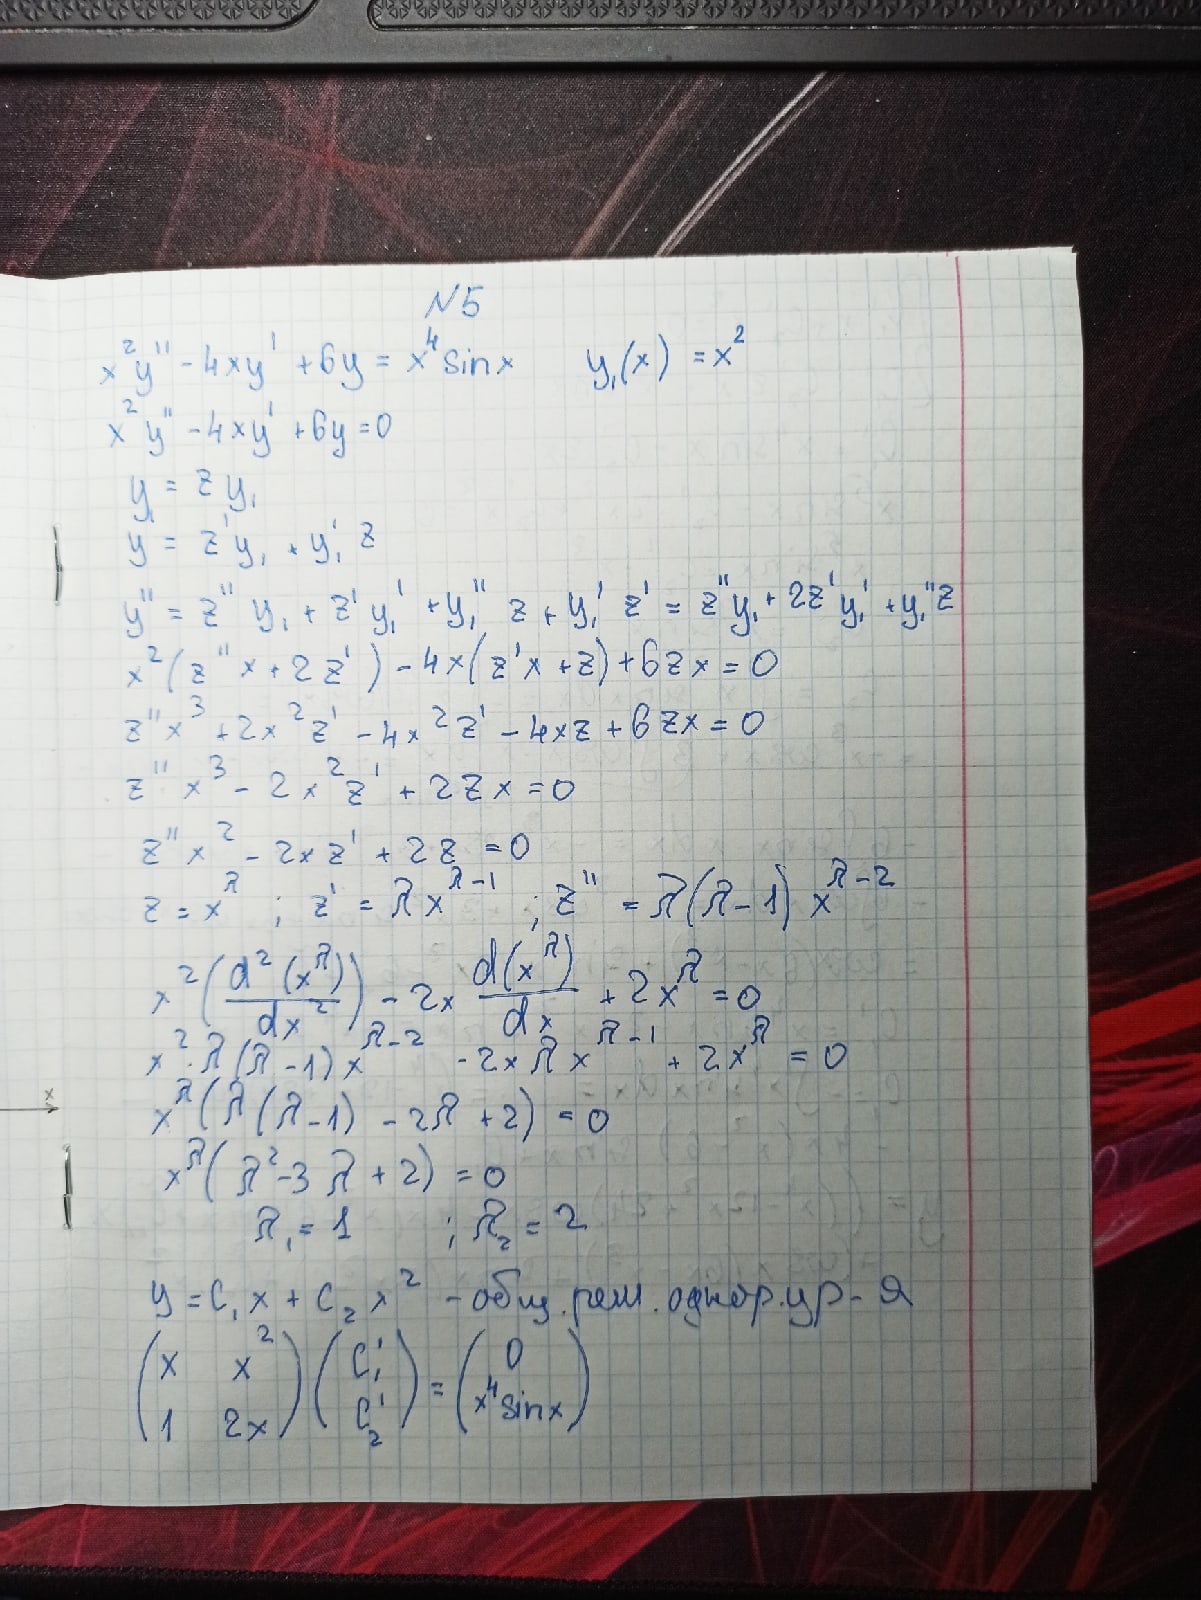 N5
x²y'' - 4xy' + 6y = x⁴sinx y₁(x) = x²
x²y'' - 4xy' + 6y = 0
y = zy₁
y' = z'y₁ + y₁'z
y'' = z''y₁ + z'y₁' + y₁''z + y₁'z' = z''y₁ + 2z'y₁' + y₁''z
x²(z''x + 2z') - 4x(z'x + z) + 6zx = 0
z''x³ + 2x²z' - 4x²z' - 4xz + 6zx = 0
z''x³ - 2x²z' + 2zx = 0
z''x² - 2xz' + 2z = 0
z = x^λ ; z' = λx^(λ-1) ; z'' = λ(λ-1)x^(λ-2)
x²(d²(x^λ)/dx²) - 2x d(x^λ)/dx + 2x^λ = 0
x²·λ(λ-1)x^(λ-2) - 2xλx^(λ-1) + 2x^λ = 0
x^λ(λ(λ-1) - 2λ + 2) = 0
x^λ(λ² - 3λ + 2) = 0
λ₁ = 1 ; λ₂ = 2
y = C₁x + C₂x² - общ. реш. однор. ур-я
(x x²; 1 2x)(C₁'; C₂') = (0; x⁴sinx)
x